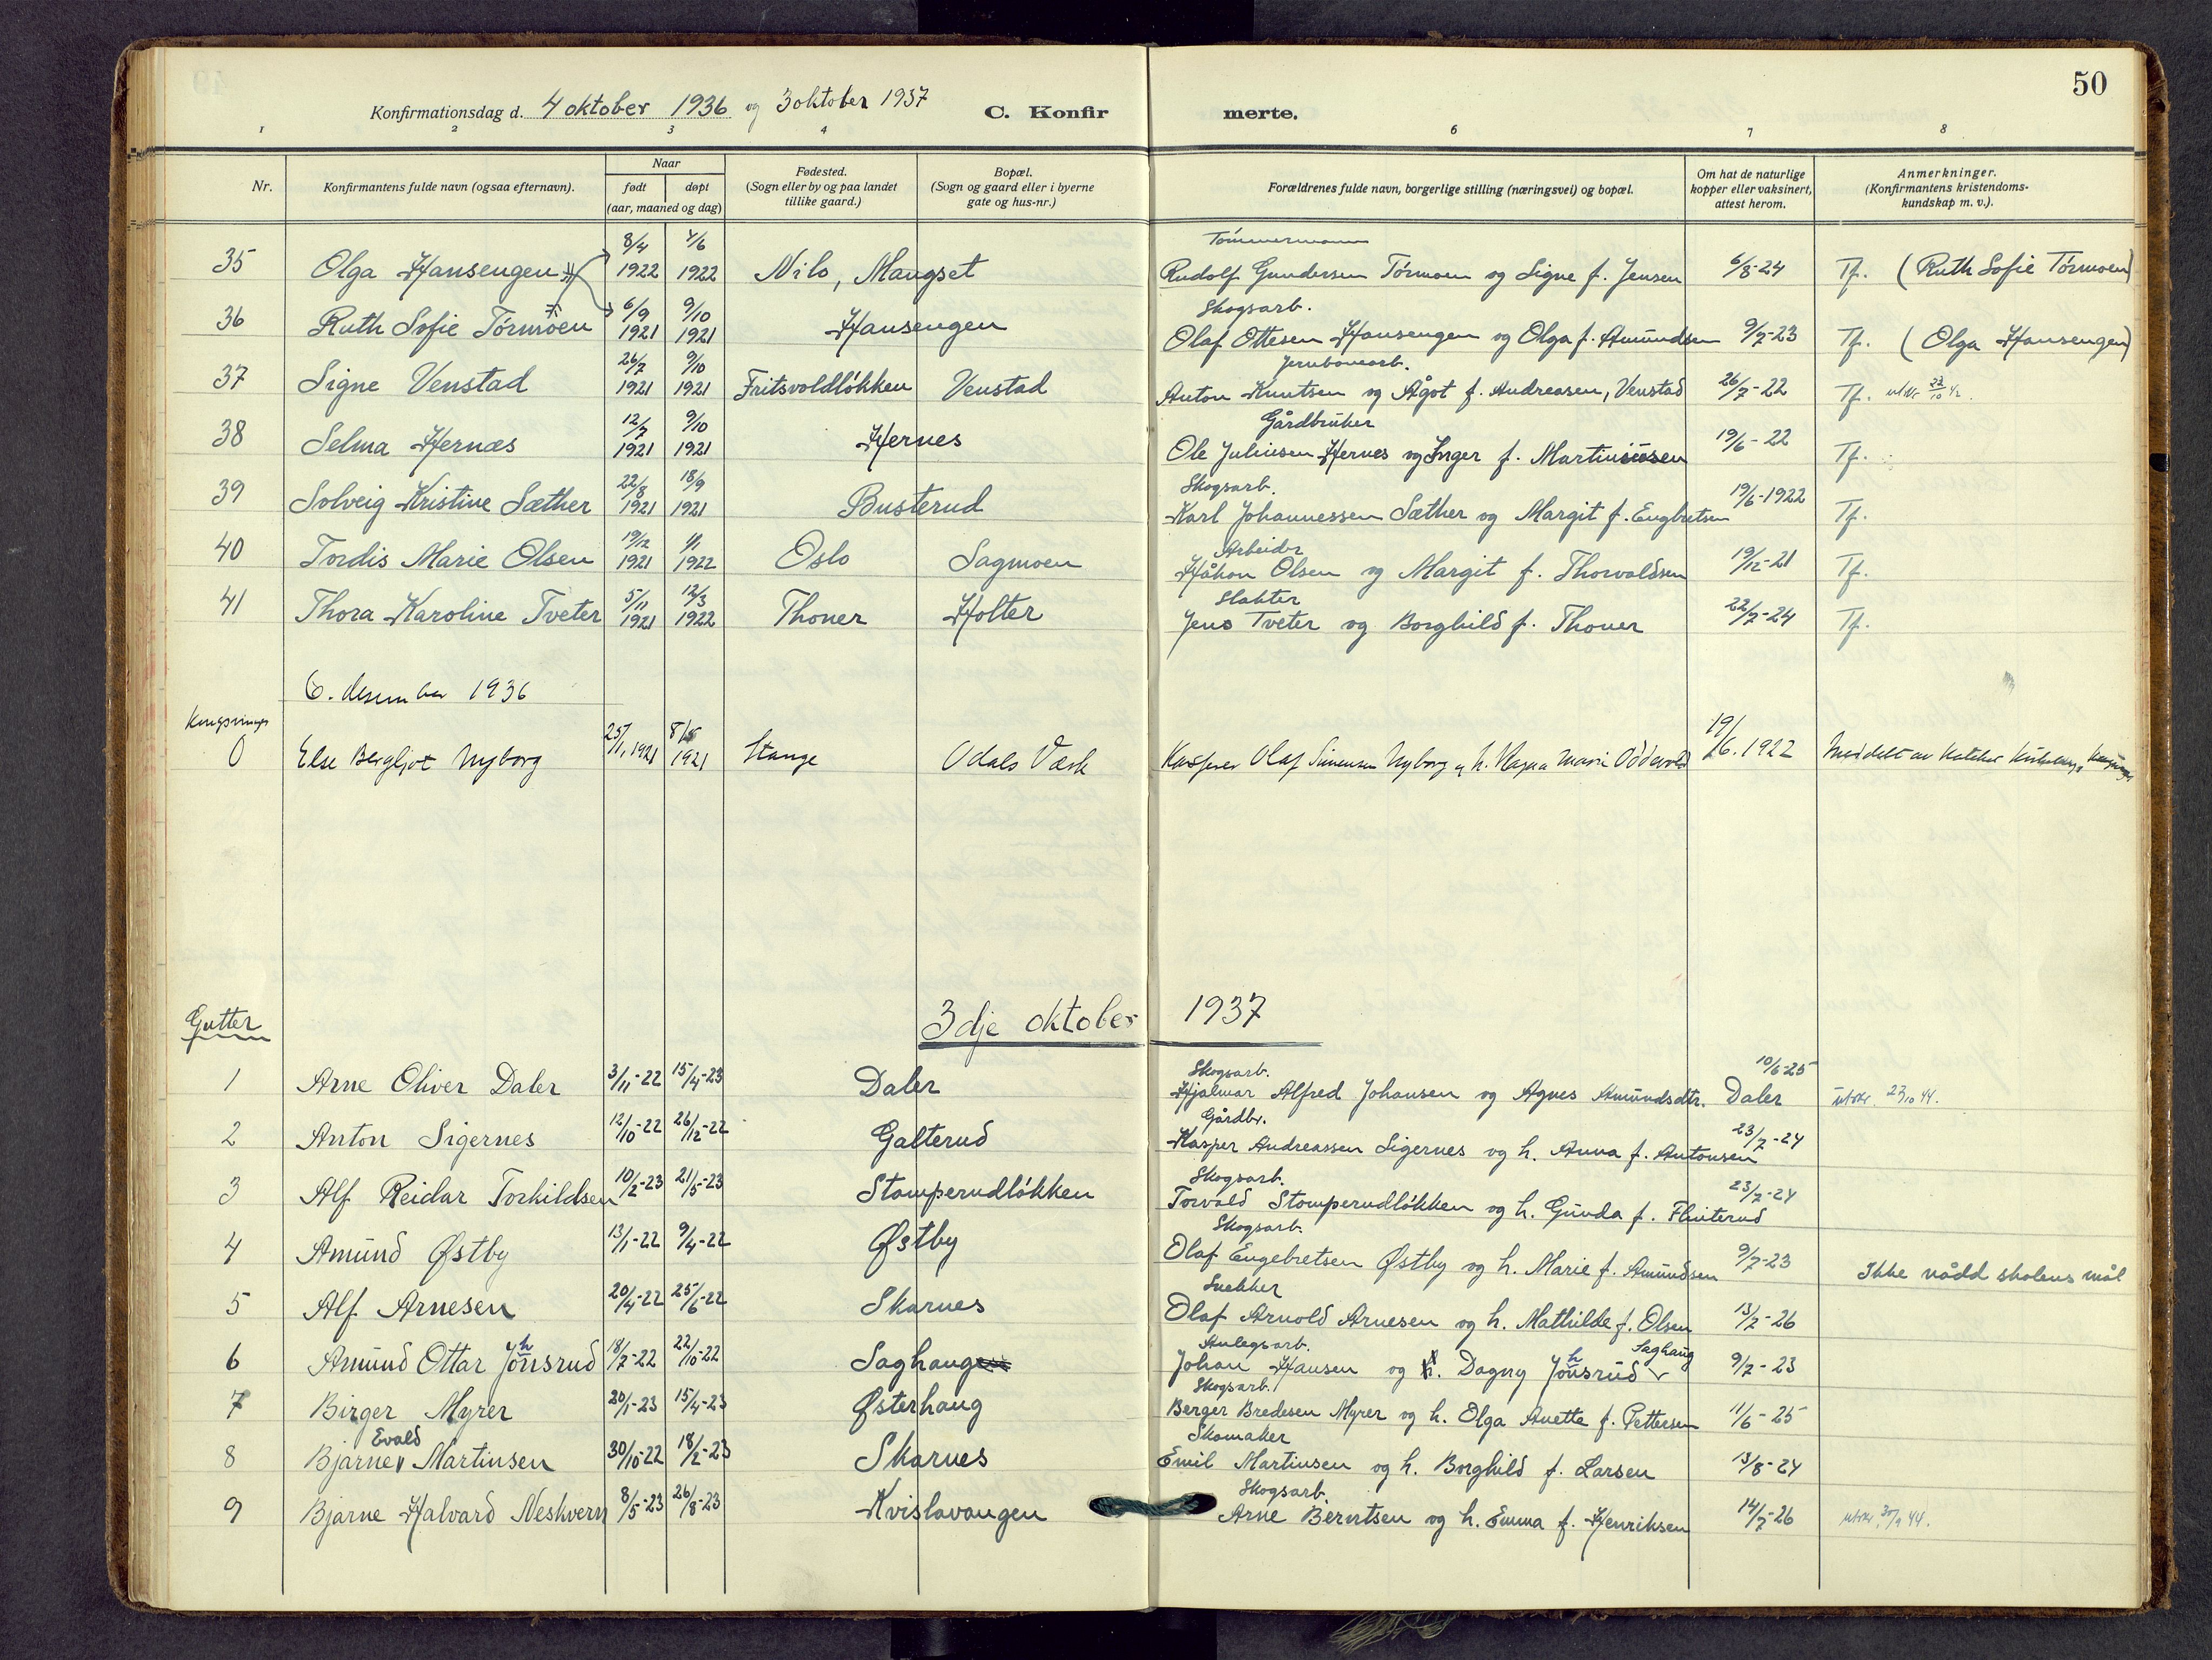 50
Konfirmationsdag d. 4 oktober 1936 og 3 oktober 1937 C. Konfirmerte.
1 2 3 4 6 7 8
Nr. Konfirmantens fulde navn (ogsaa efternavn). Naar født døpt (aar, maaned og dag) Fødested. (Sogn eller by og paa landet tillike gaard.) Bopæl. (Sogn og gaard eller i byerne gate og hus-nr.) Forældrenes fulde navn, borgerlige stilling (næringsvei) og bopæl. Om hat de naturlige kopper eller vaksinert, attest herom. Anmerkninger. (Konfirmantens kristendomskundskap m. v.).
35 Olga Hansengen 8/4 1922 4/6 1922 Nilo, Mangset Tømmermann Rudolf Gundersen Tørmoen og Signe f. Jensen 6/8-24 Tf. (Ruth Sofie Tørmoen)
36 Ruth Sofie Tørmoen 6/9 1921 9/10 1921 Hansengen Skogsarb. Olaf Ottesen Hansengen og Olga f. Amundsen 9/7-23 Tf. (Olga Hansengen)
37 Signe Venstad 26/7 1921 9/10 1921 Fritsvoldløkken Venstad Jernbanearb. Anton Knutsen og Ågot f. Andreasen, Venstad 26/7-22 Tf.
38 Selma Hernæs 12/7 1921 9/10 1921 Hernes Gårdbruker Ole Juliusen Hernes og Inger f. Martinussen 19/6-22 Tf.
39 Solveig Kristine Sæther 22/8 1921 18/9 1921 Busterud Skogsarb. Karl Johannessen Sæther og Margit f. Engbretsen 19/6-1922 Tf.
40 Tordis Marie Olsen 19/12 1921 1/1 1922 Oslo Sagmoen Arbeider Håkon Olsen og Margit f. Thorvaldsen 19/12-21 Tf.
41 Thora Karoline Tveter 5/11 1921 12/3 1922 Thoner Holter Slakter Jens Tveter og Borghild f. Thoner 22/7-24 Tf.
6. desember 1936
0 Else Bergljot Nyborg 1921 1921 Stange Odals Værk Kasper Olaf Simensen Nyborg og h. Magna Marie Oddevold 19/6. 1922 Meddelt av
Gutter 3dje oktober 1937
1 Arne Oliver Daler 3/11-22 15/4-23 Daler Skogsarb. Hjalmar Alfred Johansen og Agnes Amundsdtr. Daler 10/6-25 utskr. 23/10 44.
2 Anton Sigernes 12/10-22 26/12-22 Galterud Gårdbr. Kasper Andreassen Sigernes og h. Anna f. Antonsen 23/7-24
3 Alf Reidar Torkildsen 10/2-23 21/5-23 Stomperudløkken Skogsarb. Torvald Stomperudløkken og h. Gunda f. Flinterud 23/7-24
4 Amund Østby 13/1-22 9/4-22 Østby Skogsarb. Olaf Engebretsen Østby og h. Marie f. Amundsen 9/7-23 Ikke nådd skolens mål
5 Alf Arnesen 20/4-22 25/6-22 Skarnes Snekker Olaf Arnold Arnesen og h. Mathilde f. Olsen 13/7-26
6 Amund Ottar Johnsrud 18/7-22 22/10-22 Saghaug Anlegsarb. Johan Hansen og Dagny Johnsrud Saghaug 9/7-23
7 Birger Myrer 20/1-23 15/4-23 Østerhaug Skogsarb. Berger Bredesen Myrer og h. Olga Anette f. Pettersen 11/6-25
8 Bjarne Evald Martinsen 30/10-22 18/2-23 Skarnes Skomaker Emil Martinsen og h. Borghild f. Larsen 13/8-24
9 Bjarne Halvard Neskvern 8/5-23 26/8-23 Kvislavangen Skogsarb. Arne Berntsen og h. Emma f. Henriksen 14/7-26 utskr.